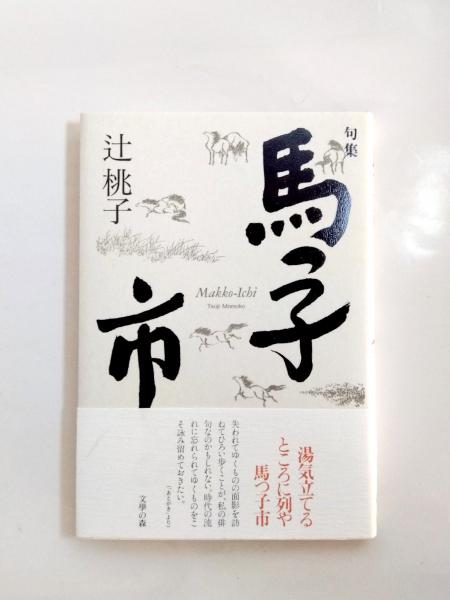 句集
馬子
市
辻桃子
Makko-Ichi
Tsuji Momoko
湯気立てる
ところに列や
馬つ子市
失われてゆくものの面影を訪
ねてひろい歩くことが、私の俳
句なのかもしれない。時代の流
れに忘れられてゆくものをこ
そ詠み留めておきたい。
(「あとがき」より)
文學の森